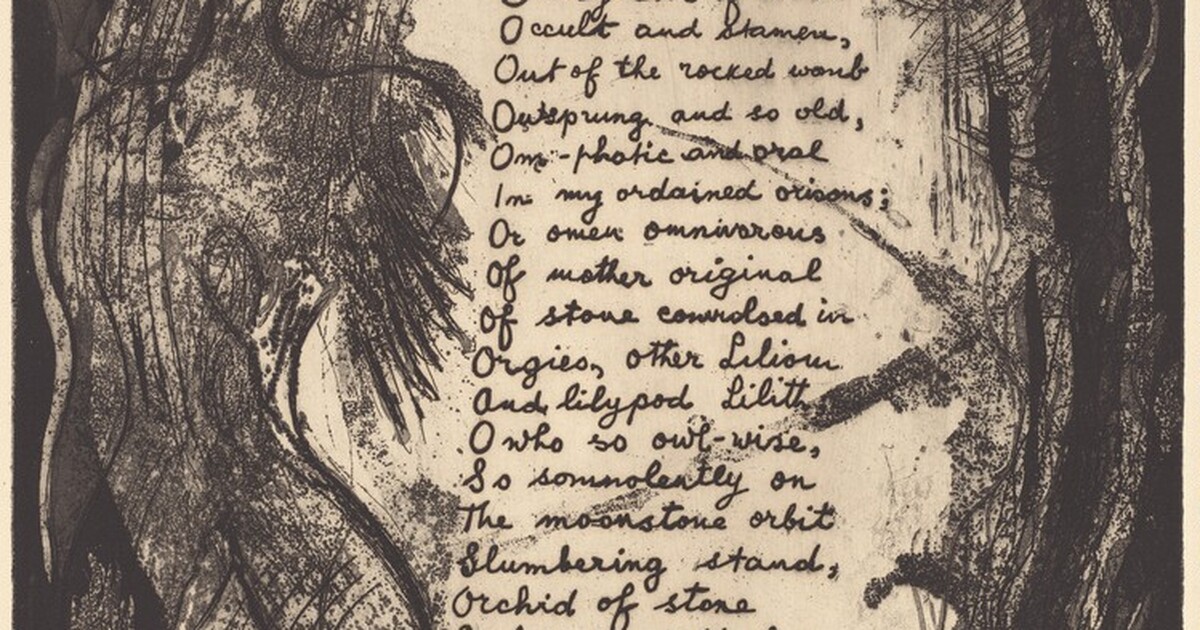 Occult and stamen,
Out of the rocked womb
Outsprung and so old,
Om-phatic and oral
In my ordained orisons;
Or omen omnivorous
Of mother original
Of stone controlsed in
Orgies, other Lilium
And lilypod Lilith
O who so owl-wise,
So somnolently on
The moonstone orbit
Slumbering stand,
Orchid of stone